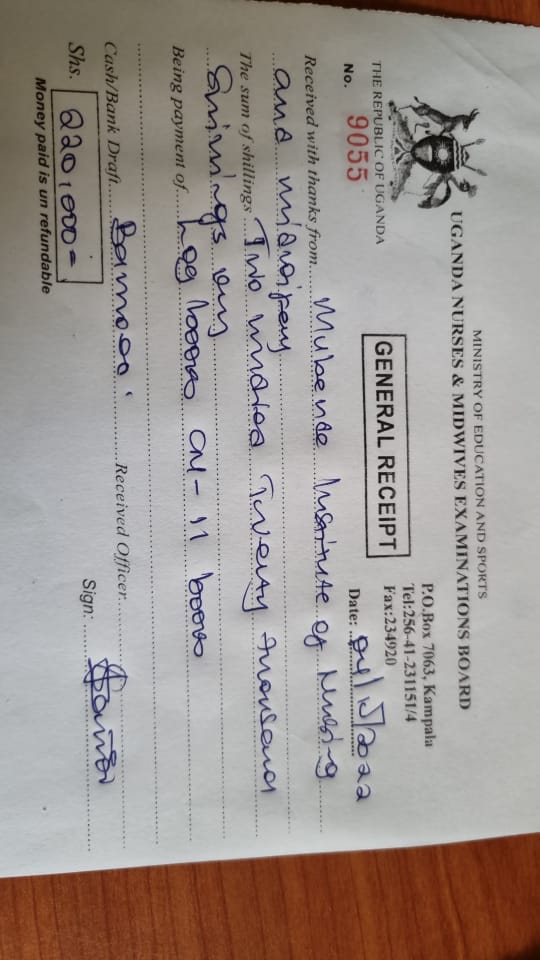 MINISTRY OF EDUCATION AND SPORTS
UGANDA NURSES & MIDWIVES EXAMINATIONS BOARD
P.O.Box 7063, Kampala
Tel:256-41-231151/4
Fax:234920
THE REPUBLIC OF UGANDA
GENERAL RECEIPT
No. 9055
Date: 04/5/2022
Received with thanks from Mubende Institute of Nursing
and midwifery
The sum of shillings Two hundred Twenty thousand
Shillings only
Being payment of Log books CN - 11 books
Cash/Bank Draft Received Officer
Shs. 220,000=
Sign:
Money paid is un refundable